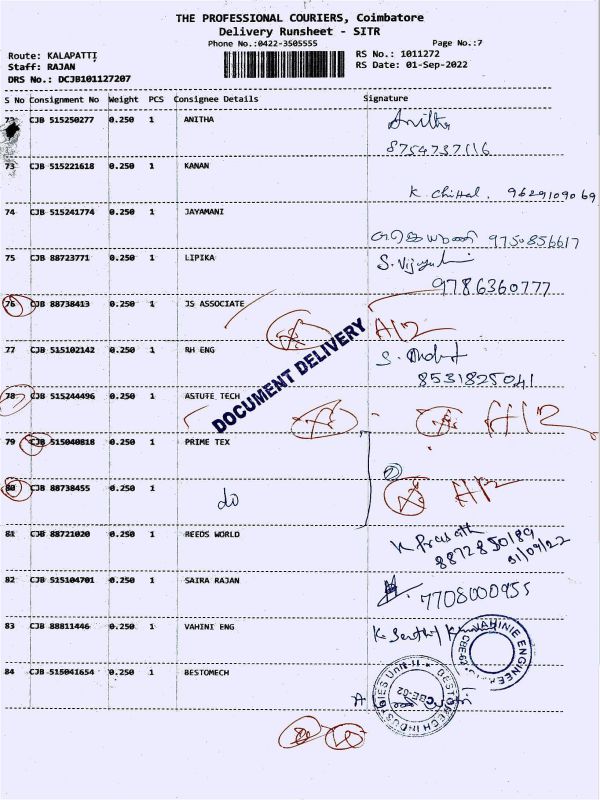 THE PROFESSIONAL COURIERS, Coimbatore
Delivery Runsheet - SITR
Phone No.:0422-3505555 Page No.:7
Route: KALAPATTI RS No.: 1011272
Staff: RAJAN RS Date: 01-Sep-2022
DRS No.: DCJB101127207
S No Consignment No Weight PCS Consignee Details Signature
72 CJB 515250277 0.250 1 ANITHA Anitha
8754737116
73 CJB 515221618 0.250 1 KANAN
K 9629109069
74 CJB 515241774 0.250 1 JAYAMANI
9750856617
75 CJB 88723771 0.250 1 LIPIKA S.
9786360777
76 CJB 88738413 0.250 1 JS ASSOCIATE A12
DOCUMENT DELIVERY
77 CJB 515102142 0.250 1 RH ENG S.
8531825041
78 CJB 515244496 0.250 1 ASTUTE TECH A12
79 CJB 515040818 0.250 1 PRIME TEX
80 CJB 88738455 0.250 1 do A12
81 CJB 88721020 0.250 1 REEDS WORLD K Prasath
8872850189
82 CJB 515104701 0.250 1 SAIRA RAJAN 7708000955
83 CJB 88811446 0.250 1 VAHINI ENG K.
84 CJB 515041654 0.250 1 BESTOMECH A